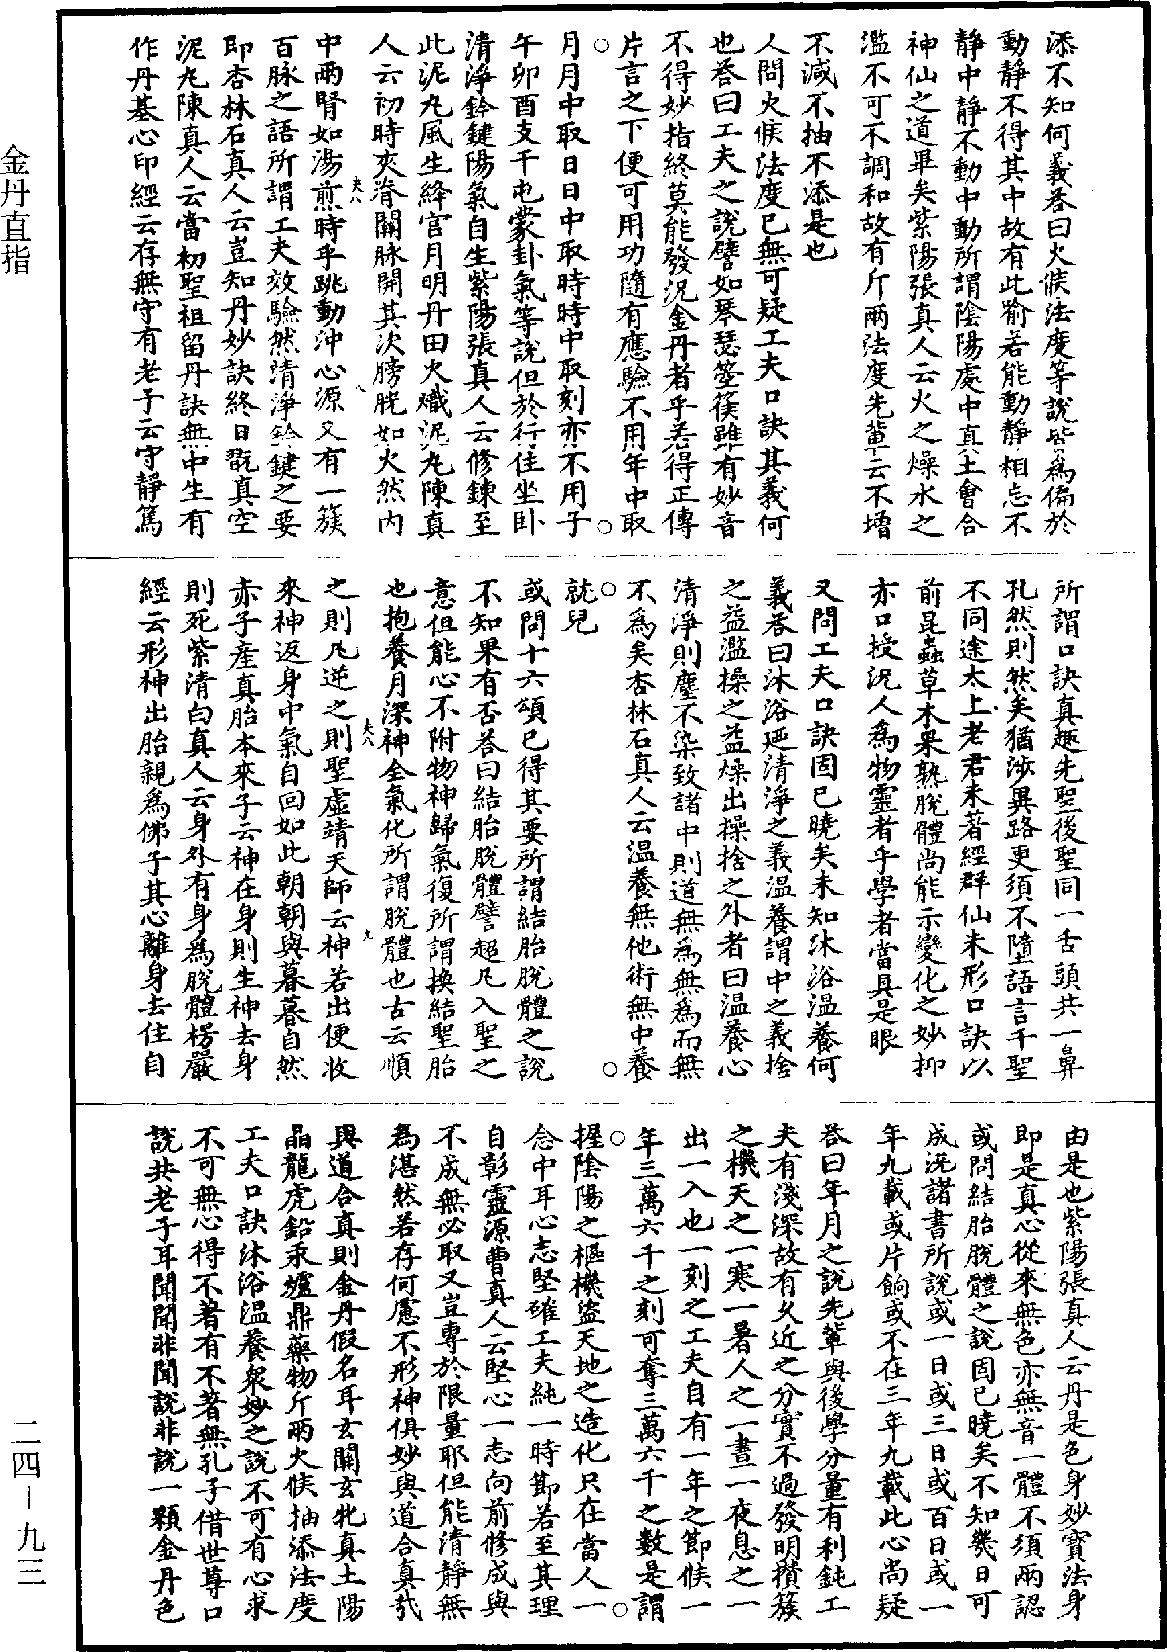 添不知何義荅曰火候法度等說皆為偏於
動靜不得其中故有此喻若能動靜相忘不
靜中靜不動中動所謂陰陽處中真土會合
神仙之道畢矣紫陽張真人云火之燥水之
濫不可不調和故有斤兩法度先軰云不增
不減不抽不添是也
人問火候法度已無可疑工夫口訣其義何
也荅曰工夫之說譬如琴瑟箜篌雖有妙音
不得妙指終莫能發況金丹者乎若得正傳
片言之下便可用功隨有應驗不用年中取
月月中取日日中取時時中取刻亦不用子
午卯酉支干屯蒙卦氣等說但於行住坐臥
清淨鈴鍵陽氣自生紫陽張真人云修鍊至
此泥丸風生絳宮月明丹田火熾泥丸陳真
人云初時夾脊關脉開其次膀胱如火然內
中兩腎如湯煎時乎跳動沖心源又有一簇
百脉之語所謂工夫效驗然清淨鈴鍵之要
即杏林石真人云豈知丹妙訣終日翫真空
泥丸陳真人云當初聖祖留丹訣無中生有
作丹基心印經云存無守有老子云守靜篤
所謂口訣真趣先聖後聖同一舌頭共一鼻
孔然則然矣猶涉異路更須不墮語言千聖
不同途太上老君未著經群仙未形口訣以
前昆蟲草木果熟脫體尚能示變化之妙抑
亦口授況人為物靈者乎學者當具是眼
又問工夫口訣固已曉矣未知沐浴溫養何
義荅曰沐浴迺清淨之義溫養謂中之義捨
之益濫操之益燥出操捨之外者曰溫養心
清淨則塵不染致諸中則道無為無為而無
不為矣杏林石真人云溫養無他術無中養
就兒
或問十六頌已得其要所謂結胎脫體之說
不知果有否荅曰結胎脫體譬超凡入聖之
意但能心不附物神歸氣復所謂換結聖胎
也抱養月深神全氣化所謂脫體也古云順
之則凡逆之則聖虛靖天師云神若出便收
來神返身中氣自回如此朝朝與暮暮自然
赤子產真胎本來子云神在身則生神去身
則死紫清白真人云身外有身為脫體楞嚴
經云形神出胎親為佛子其心離身去住自
由是也紫陽張真人云丹是色身妙寶法身
即是真心從來無色亦無音一體不須兩認
或問結胎脫體之說固已曉矣不知幾日可
成況諸書所說或一日或三日或百日或一
年九載或片餉或不在三年九載此心尚疑
荅曰年月之說先輩與後學分量有利鈍工
夫有淺深故有久近之分實不過發明攢簇
之機天之一寒一暑人之一晝一夜息之一
出一入也一刻之工夫自有一年之節候一
年三萬六千之刻可奪三萬六千之數是謂
握陰陽之樞機盜天地之造化只在當人一
念中耳心志堅確工夫純一時節若至其理
自彰靈源曹真人云堅心一志向前修成與
不成無必取又豈專於限量耶但能清靜無
為湛然若存何慮不形神俱妙與道合真㢤
與道合真則金丹假名耳玄關玄牝真土陽
晶龍虎鉛汞爐鼎藥物斤兩火候抽添法度
工夫口訣沐浴溫養衆妙之說不可有心求
不可無心得不著有不著無孔子借世尊口
說共老子耳聞聞非聞說非說一顆金丹色
金丹直指
二四－九三